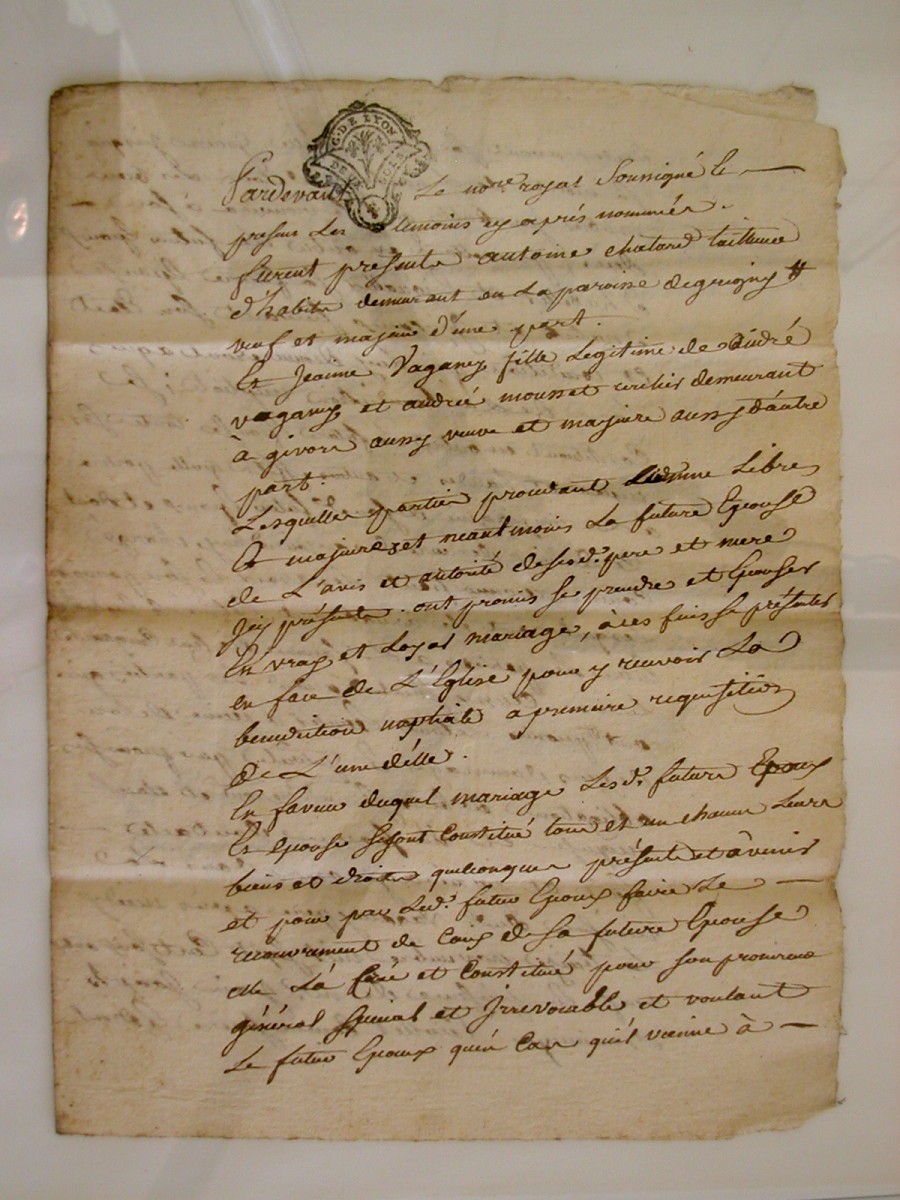 G. DE LYON
DEUX SOLS
Pardevant Le nore royal Soussigné le —
presens Les temoins cy après nommés.
furent présents antoine chatard tailleur
d'habits demeurant en La paroisse de grigny
veuf et majeur d'une part.
Et Jeanne Vaganay fille Legitime de André
vaganay et andrée mousset demeurant
à givors aussy veuve et majeure aussy d'autre
part.
Lesquelles parties procedant comme Libres
Et majeures et neautmoins La future Epouse
de L'avis et autorité de sesd. pere et mere
Jcy présents. ont promis se prendre et Epouser
En vray et Loyal mariage, à ces fins se présenter
en face de L'Eglise pour y recevoir La
benediction nuptiale a premiere requisition
de L'une d'elle.
En faveur duquel mariage Lesd. futurs Epoux
Et epouse se sont Constitué tous et un chacun Leurs
biens et droits quelconques présents et àvenir
et pour par Led. futur Epoux faire Le —
recouvrement de Ceux de Sa future Epouse
elle L'à Créé et Constitué pour Son procureur
général Spécial et Jrrevocable et voulant
Le futur Epoux qu'en Cas qu'il vienne à —